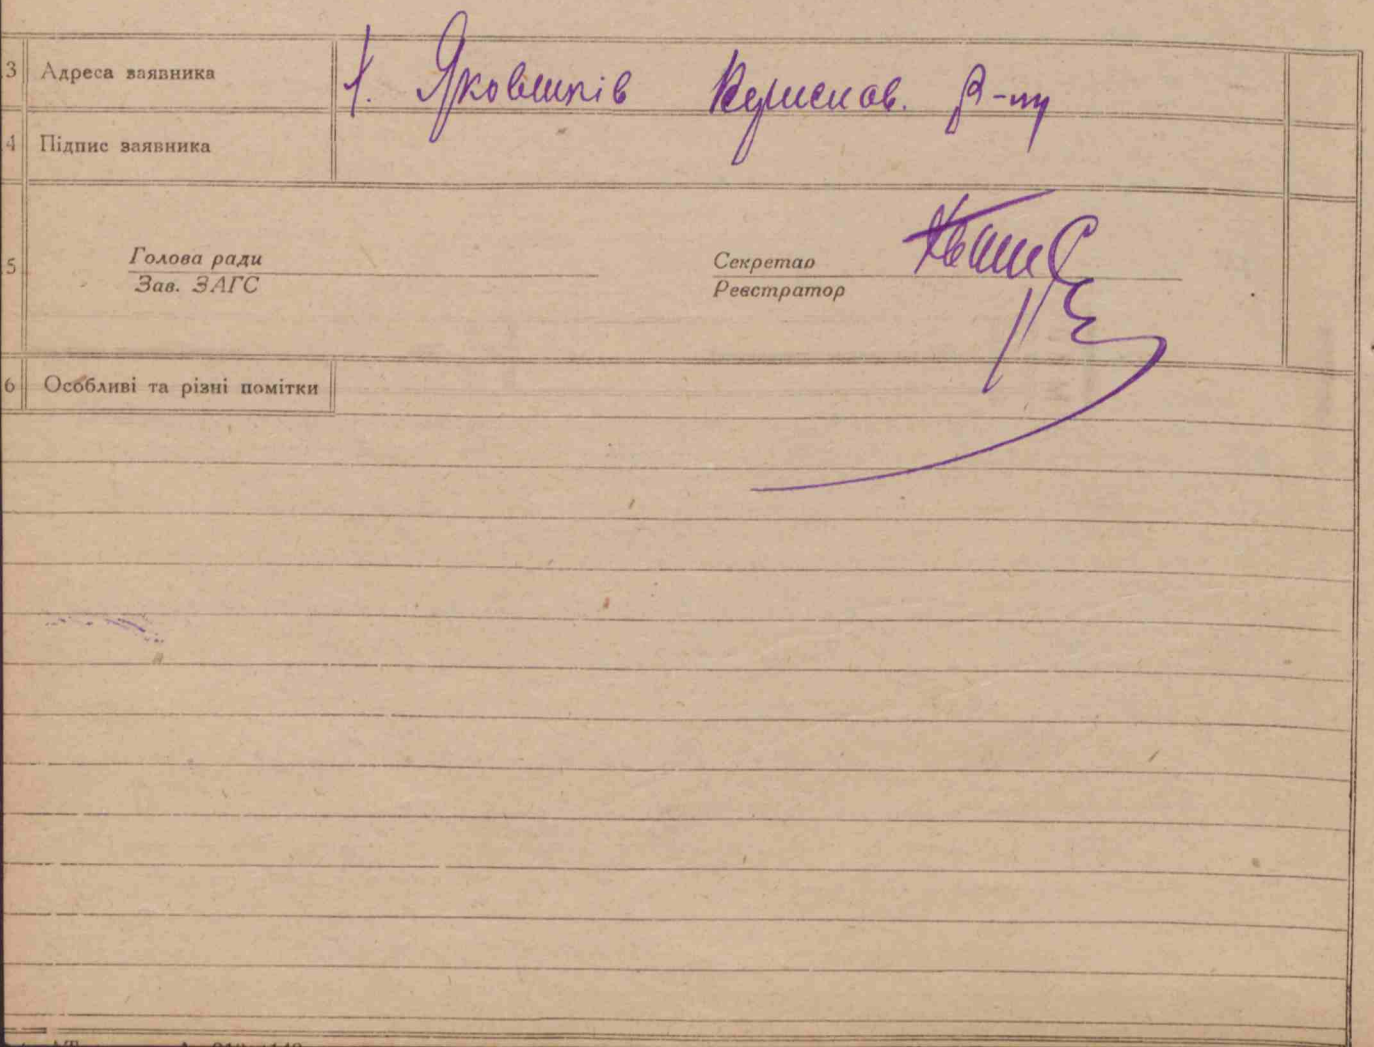 3 Адреса заявника х. Яковшпів Кушенов. р-ну
4 Підпис заявника
5 Голова ради Секретар
Зав. ЗАГС Реєстратор
6 Особливі та різні помітки